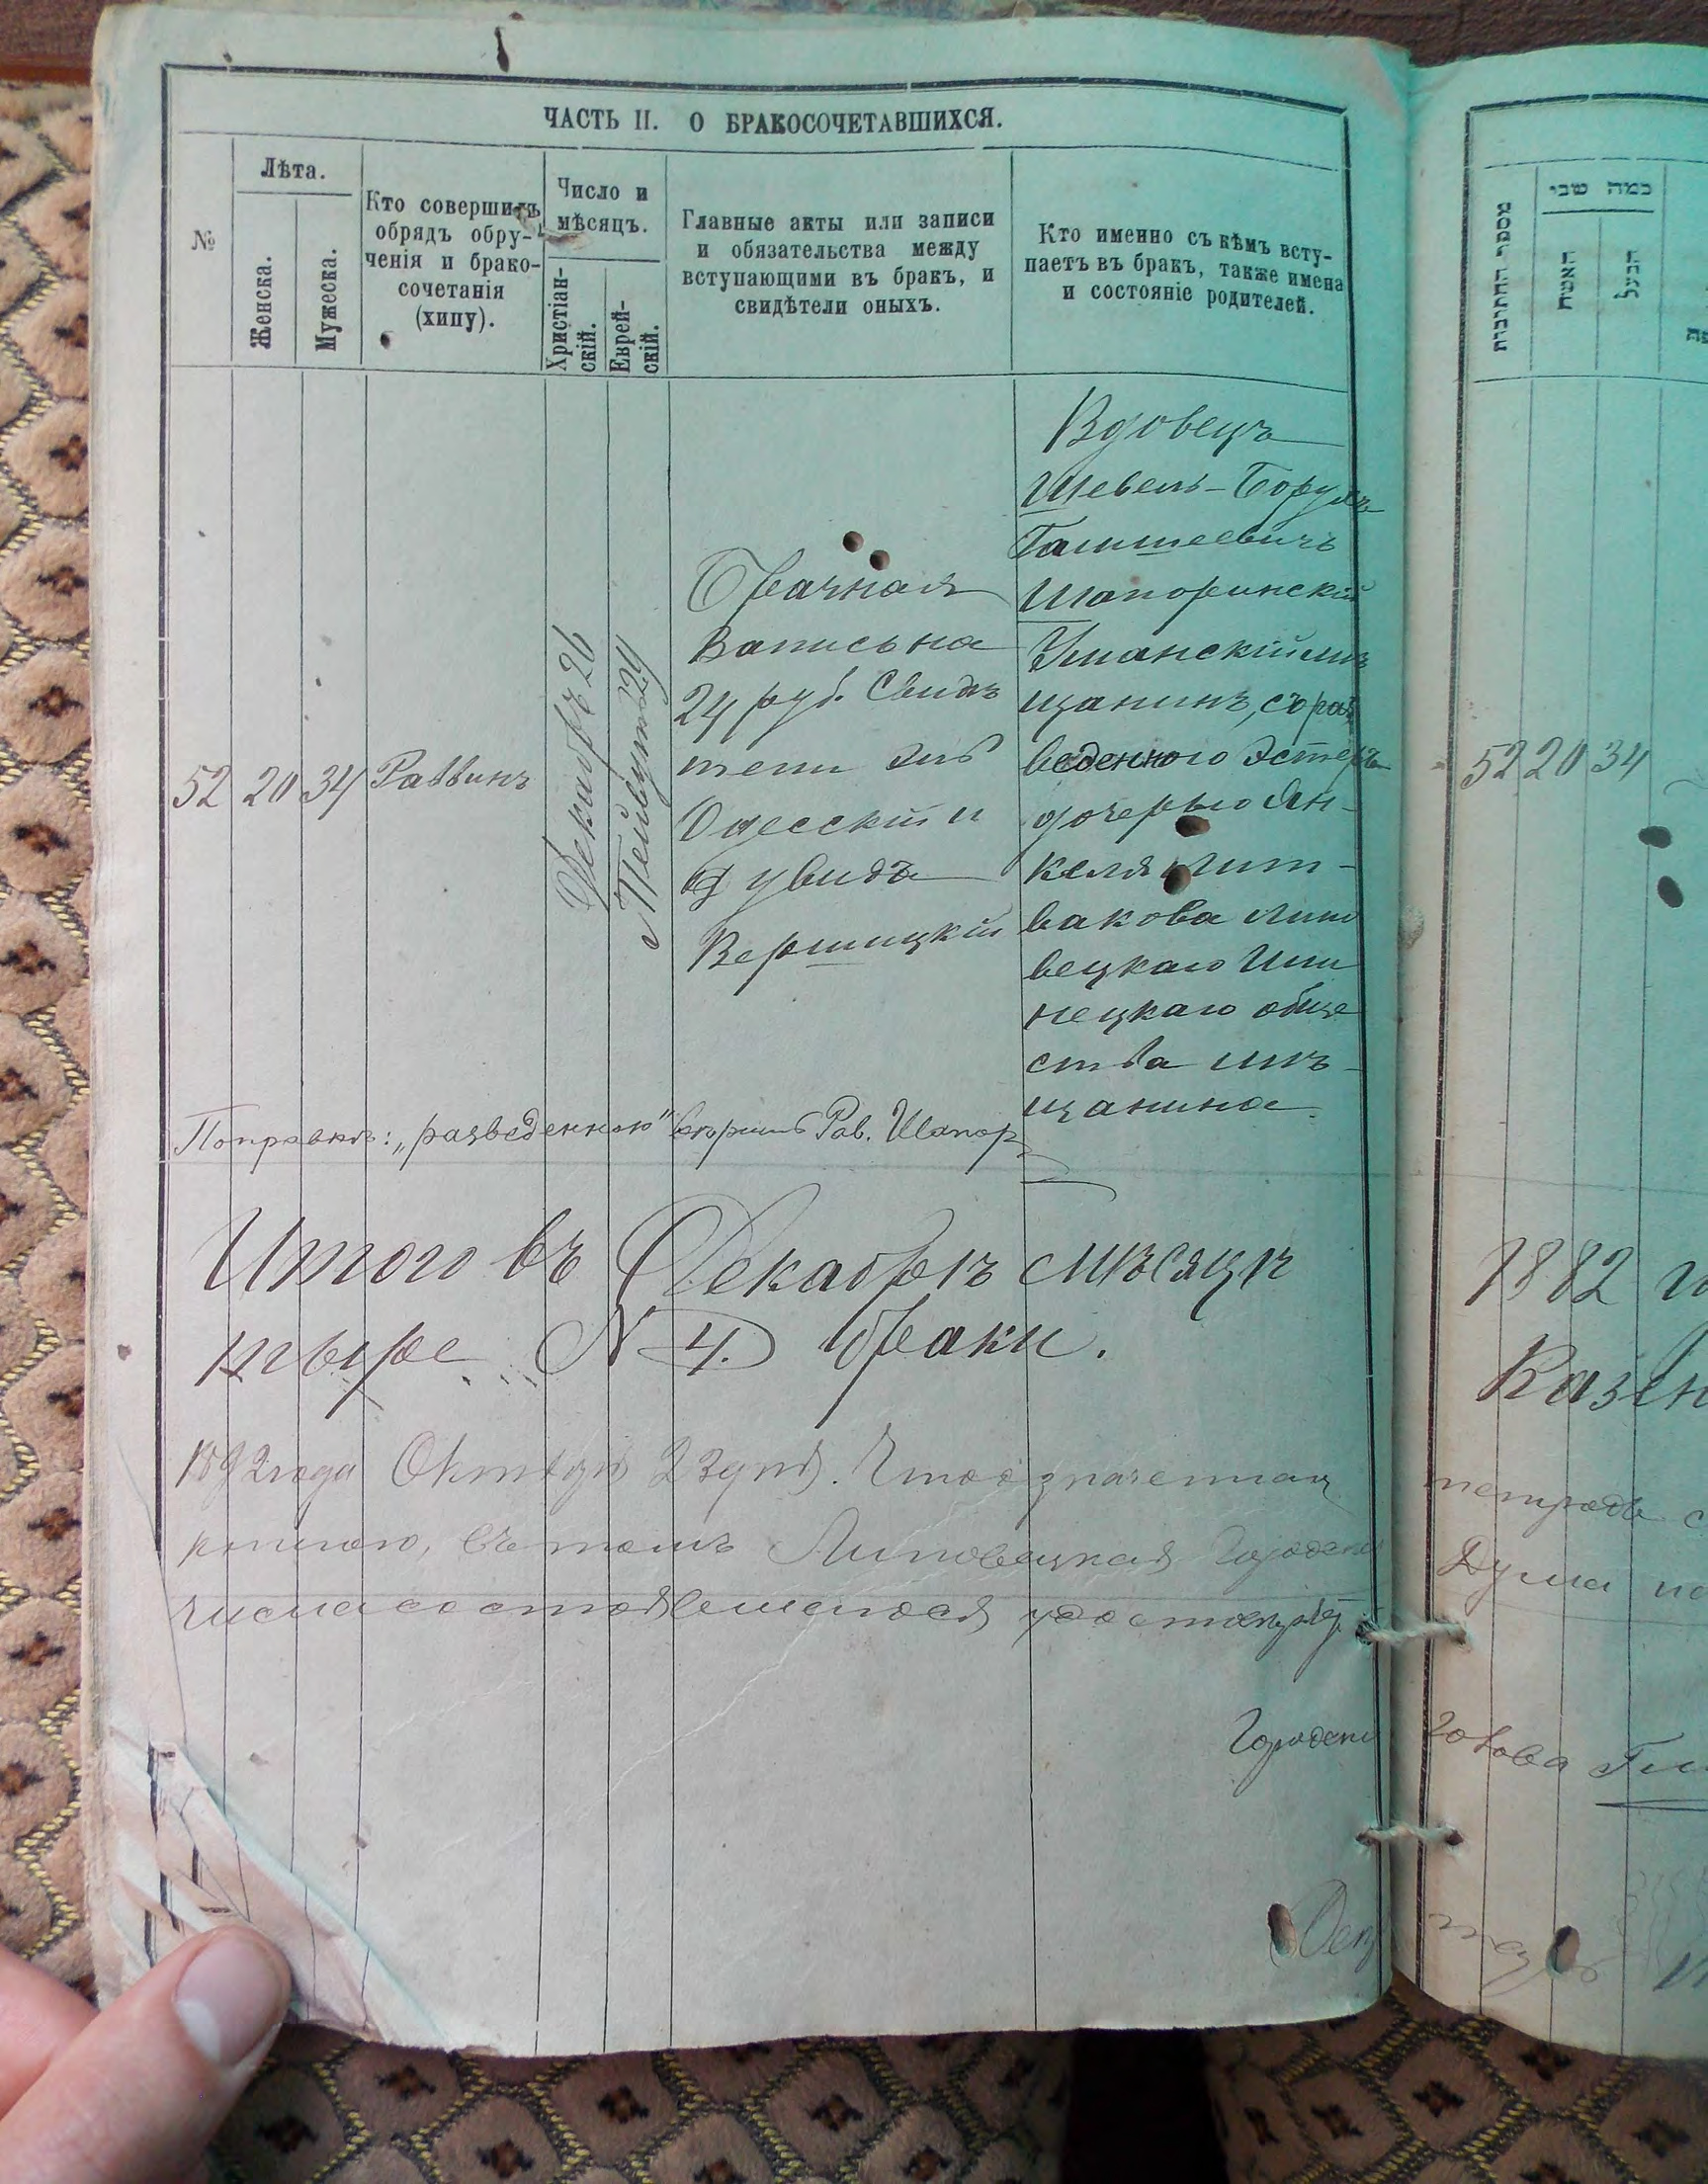 ЧАСТЬ II. О БРАКОСОЧЕТАВШИХСЯ.
№
Лѣта.
Женска.
Мужеска.
Кто совершилъ
обрядъ обру-
ченія и брако-
сочетанія
(хипу).
Число и
мѣсяцъ.
Христіан-
скій.
Еврей-
скій.
Главные акты или записи
и обязательства между
вступающими въ бракъ, и
свидѣтели оныхъ.
Кто именно съ кѣмъ всту-
паетъ въ бракъ, также имена
и состояніе родителей.
52
20
34
Раввинъ
Декабрь 26
29
Брачная
запись на
24 руб. Свидѣ
тели
Одесскій и
Дувидъ
Вершицкій
Вдовецъ
Шевель-Борухъ
Шапоринскій
Уманскій мѣ
щанинъ, съ раз
веденного Эстеръ
дочерью Ян-
келя Лит-
вакова Липо
вецкаго Или
нецкаго обще
ства мѣ-
щанина.
Поправкѣ: „разведенною" вѣримъ Рав. Шапор
Итого въ Декабрѣ мѣсяцѣ
четыре N 4. браки.
1892 года Октября 23 дня. Что означенная
въ томъ Липовецкая Городская
числа состоявшемося удостовѣр
Городск
Деп
מספר החתונות
כמה שני
האשה
הבעל
52
20
34
1882 г
Казен
тетрадь с
Дума по
голова